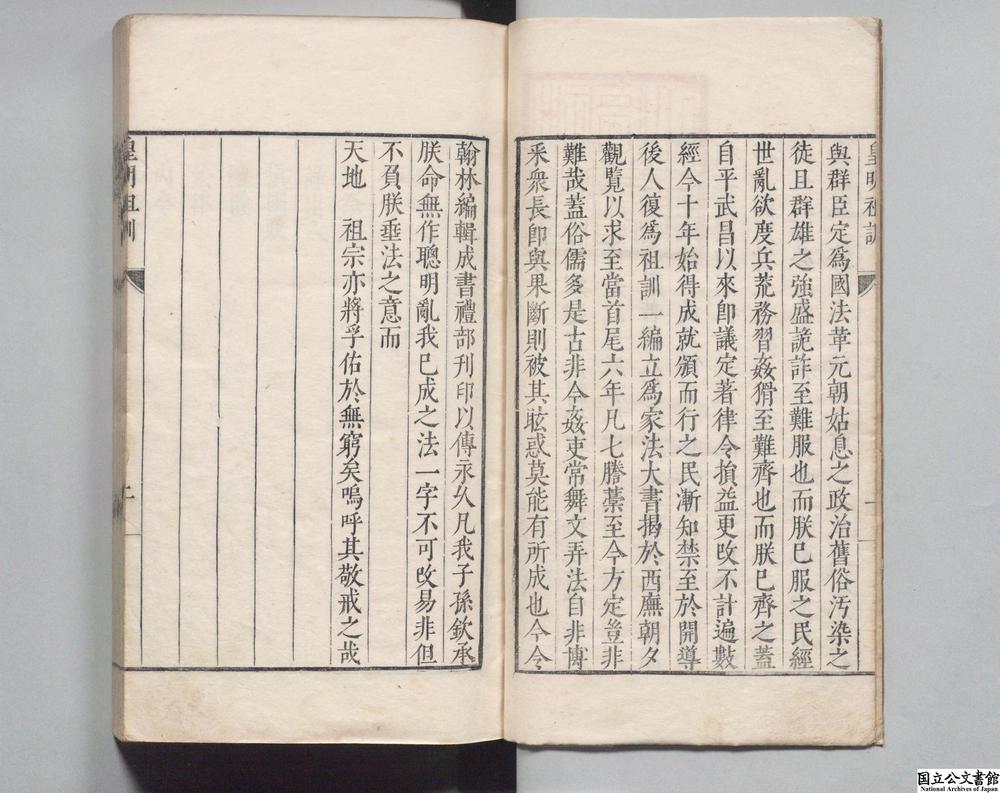 皇明祖訓
一
與群臣定爲國法革元朝姑息之政治舊俗汚染之
徒且群雄之強盛詭詐至難服也而朕已服之民經
世亂欲度兵荒務習姦猾至難齊也而朕已齊之蓋
自平武昌以來即議定著律令損益更改不計遍數
經今十年始得成就頒而行之民漸知禁至於開導
後人復爲祖訓一編立爲家法大書揭於西廡朝夕
觀覽以求至當首尾六年凡七謄藁至今方定豈非
難哉蓋俗儒多是古非今姦吏常舞文弄法自非博
釆衆長即與果斷則被其眩惑莫能有所成也今令
翰林編輯成書禮部刊印以傳永久凡我子孫欽承
朕命無作聰明亂我已成之法一字不可改易非但
不負朕垂法之意而
天地　祖宗亦將孚佑於無窮矣嗚呼其敬戒之哉
皇明祖訓
国立公文書館
National Archives of Japan